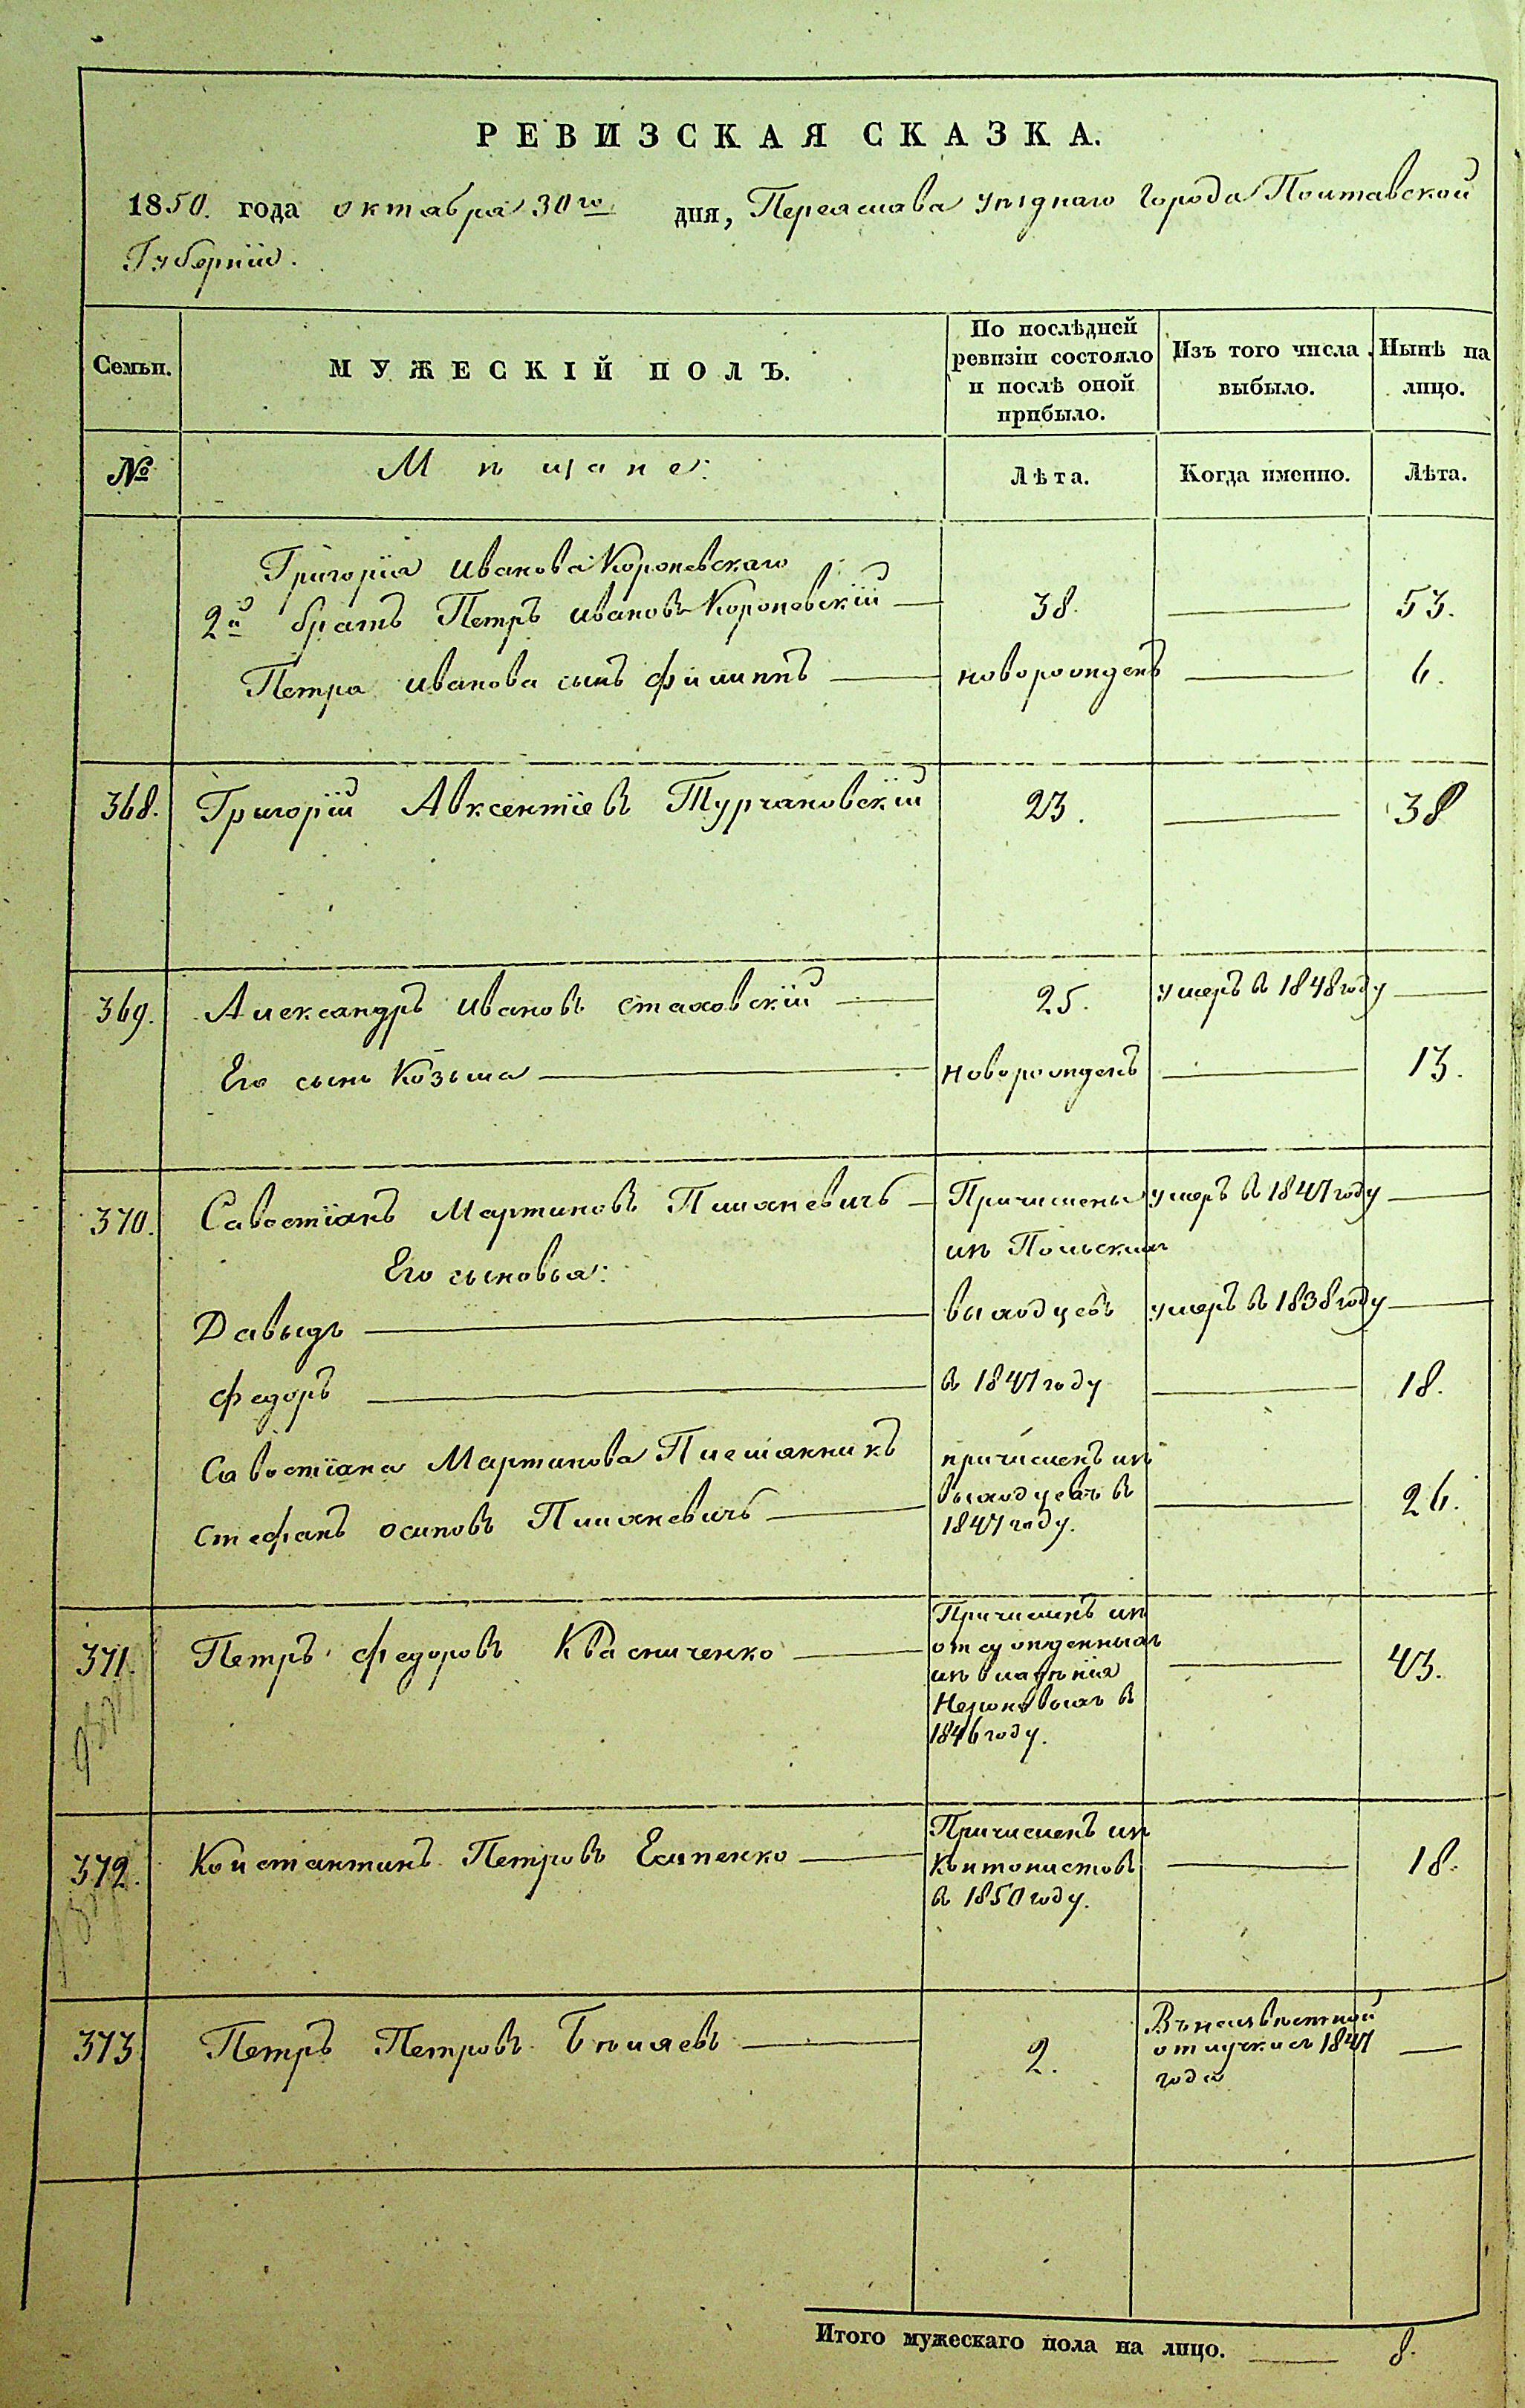 РЕВИЗСКАЯ СКАЗКА.
1850. года октября 30го дня, Переяслава уѣзднаго города Полтавской
Губерніи.
Семьи.
МУЖЕСКІЙ ПОЛЪ.
По послѣдней
ревизіи состояло
и послѣ оной
прибыло.
Изъ того числа
выбыло.
Нынѣ на
лицо.
№
Мѣщане:
Лѣта.
Когда именно.
Лѣта.
Григорія Иванова Короневскаго
2й братъ Петръ Ивановъ Короневскій — 38. — 53.
Петра Иванова сынъ Филиппъ — новорожденъ — 6.
368. Григорій Авксентіевъ Турчановскій 23. — 38
369. Александръ Ивановъ Стаховскій — 25. умеръ в 1848 году —
Его сынъ Козьма — новорожденъ — 13.
370. Савостіанъ Мартиновъ Пиляневичъ — Причислены умеръ в 1847 году —
Его сыновья:
изъ Польскихъ
Давыдъ — выходцевъ умеръ в 1838 году —
Федоръ — в 1847 году — 18.
Савостіана Мартинова Племянникъ
Стефанъ Осиповъ Пиляневичъ —
причисленъ изъ
выходцевъ в
1847 году.
— 26.
371. Петръ Федоровъ Квасниченко —
Причисленъ изъ
отсужденныхъ
изъ владѣнія
в
1846 году.
— 43.
372. Константинъ Петровъ Есипенко —
Причисленъ изъ
Контонистовъ
в 1850 году.
— 18.
373. Петръ Петровъ Бѣляевъ — 2.
Въ неизвѣстной
отлучкѣ съ 1847
года
—
Итого мужескаго пола на лицо. — 8.